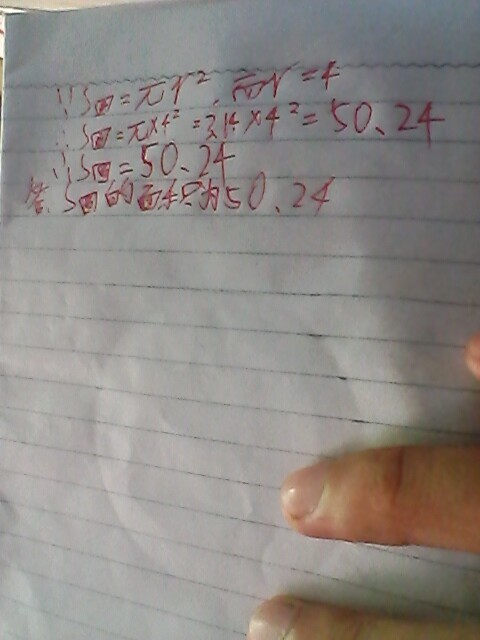 ∵S圆=πr²,而r=4
∴S圆=π×4²=3.14×4²=50.24
∵S圆=50.24
答:S圆的面积为50.24